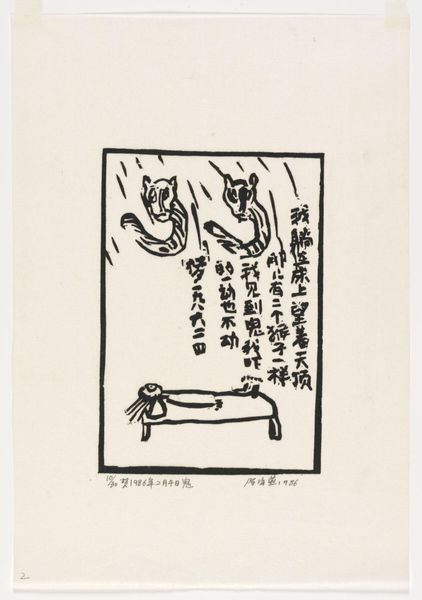 我躺在床上望着天顶
那儿有二个猴子一样
我见到鬼我吓
的一动也不动
梦一九八六二四
梦1986年二月4日鬼
1986
2